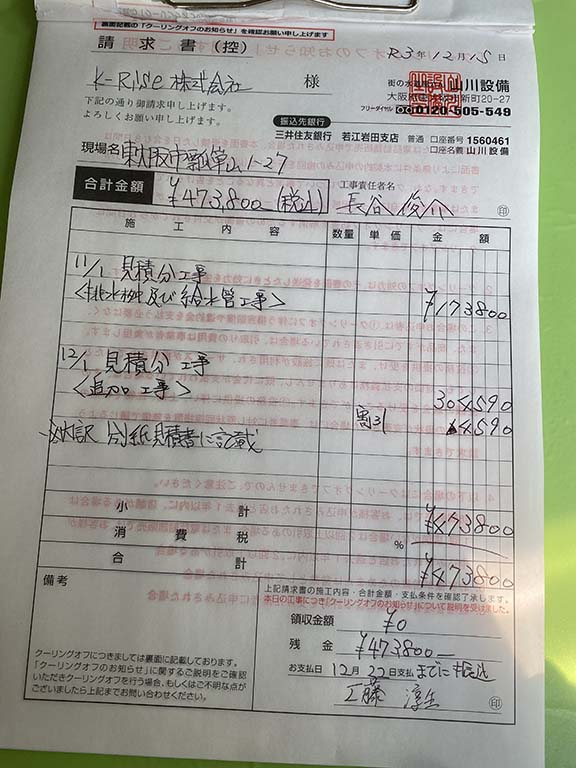 裏面記載の「クーリングオフのお知らせ」を確認お願い申し上げます
請求書(控)
R3年12月15日
K-Rise 株式会社 様
街の水道 山川設備
大阪 新町20-27
フリーダイヤル 0120-505-549
下記の通り御請求申し上げます。
よろしくお願い申し上げます。
振込先銀行
三井住友銀行 若江岩田支店 普通 口座番号 1560461
口座名義 山川設備
現場名 東大阪市 1-27
合計金額 ¥473,800(税込)
工事責任者名
長谷 俊介 印
施工内容 数量 単価 金額
11/1 見積分工事
<排水桝及び給水管工事> ¥173800
12/1 見積分工事
<追加工事> 304590
割引 -4590
内訳 別紙見積書に記載
小計 ¥473800
消費税 %
合計 ¥473800
備考
上記請求書の施工内容・合計金額・支払条件を確認了承します。
本日の工事につき「クーリングオフのお知らせ」について説明を受けました。
領収金額 ¥0
残金 ¥473800-
お支払日 12月22日支払までに振込
工藤 淳生 印
クーリングオフにつきましては裏面に記載しております。
「クーリングオフのお知らせ」に関するご説明をご確認
いただきクーリングオフを行う場合、もしくはご不明な点が
ございましたら上記までお問い合わせください。